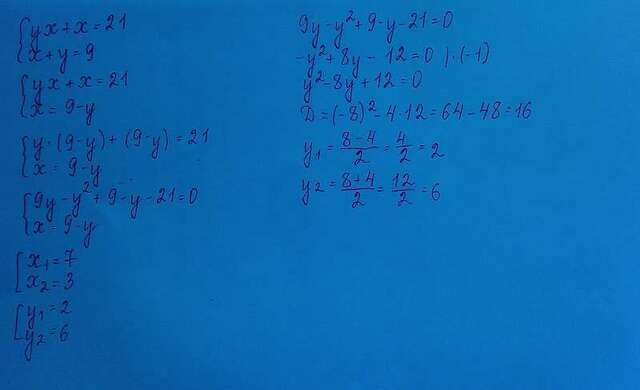 {yx + x = 21
{x + y = 9
{yx + x = 21
{x = 9 - y
{y · (9 - y) + (9 - y) = 21
{x = 9 - y
{9y - y² + 9 - y - 21 = 0
{x = 9 - y
[x₁ = 7
[x₂ = 3
[y₁ = 2
[y₂ = 6
9y - y² + 9 - y - 21 = 0
-y² + 8y - 12 = 0 | · (-1)
y² - 8y + 12 = 0
D = (-8)² - 4 · 12 = 64 - 48 = 16
y₁ = (8 - 4)/2 = 4/2 = 2
y₂ = (8 + 4)/2 = 12/2 = 6